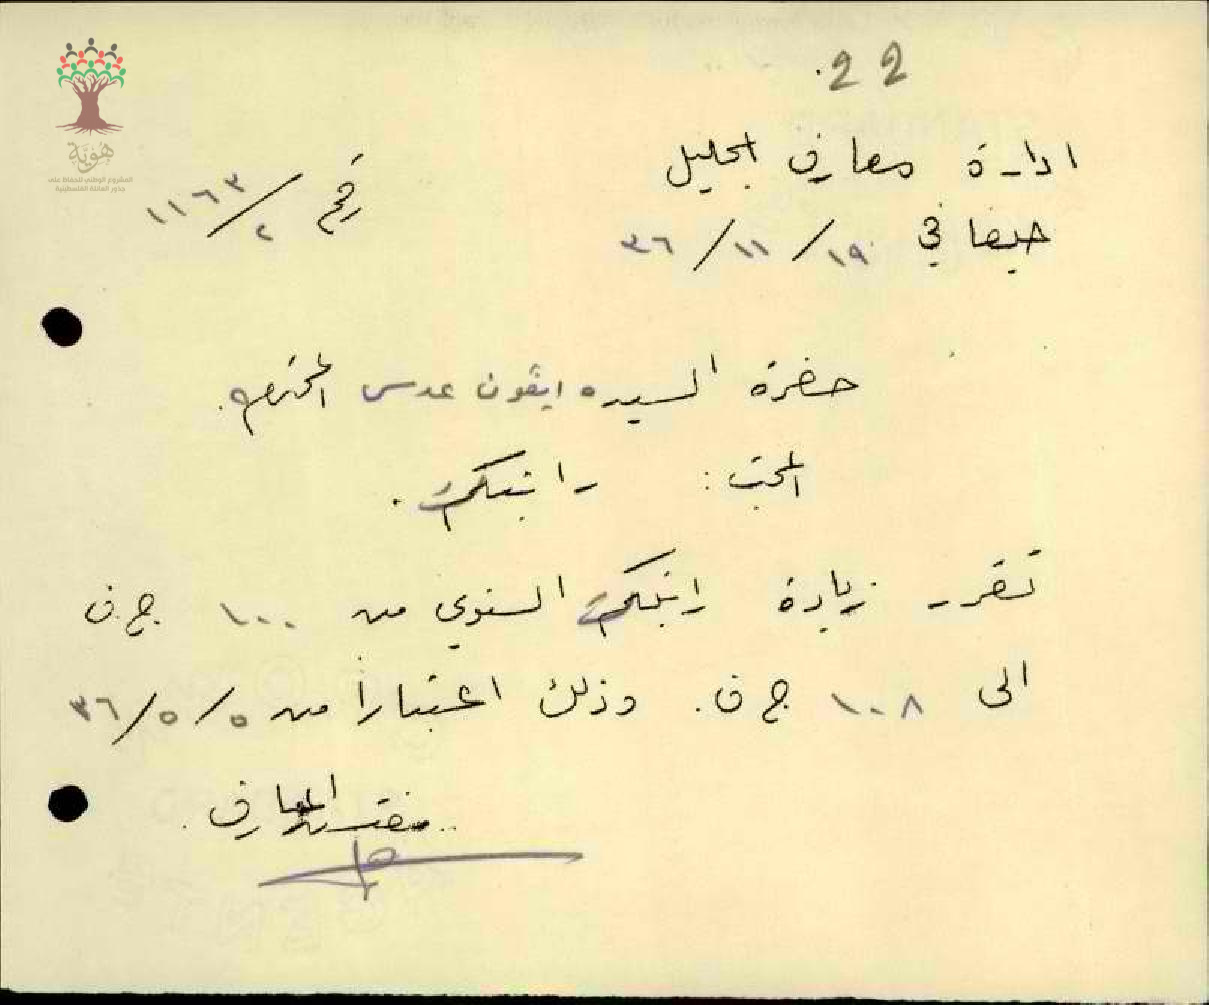 22
هوية
المشروع الوطني للحفاظ على
جذور العائلة الفلسطينية
ادارة معارف الجليل
رقم ١١٦٣/٢
حيفا في ١٩/١١/٣٦
حضرة السيده ايڤون عدس المحترمه.
المبحث: راتبكم.
تقرر زيادة راتبكم السنوي من ١٠٠ ج.ف
الى ١٠٨ ج ف. وذلك اعتباراً من ٥/٥/٣٦
مفتش المعارف